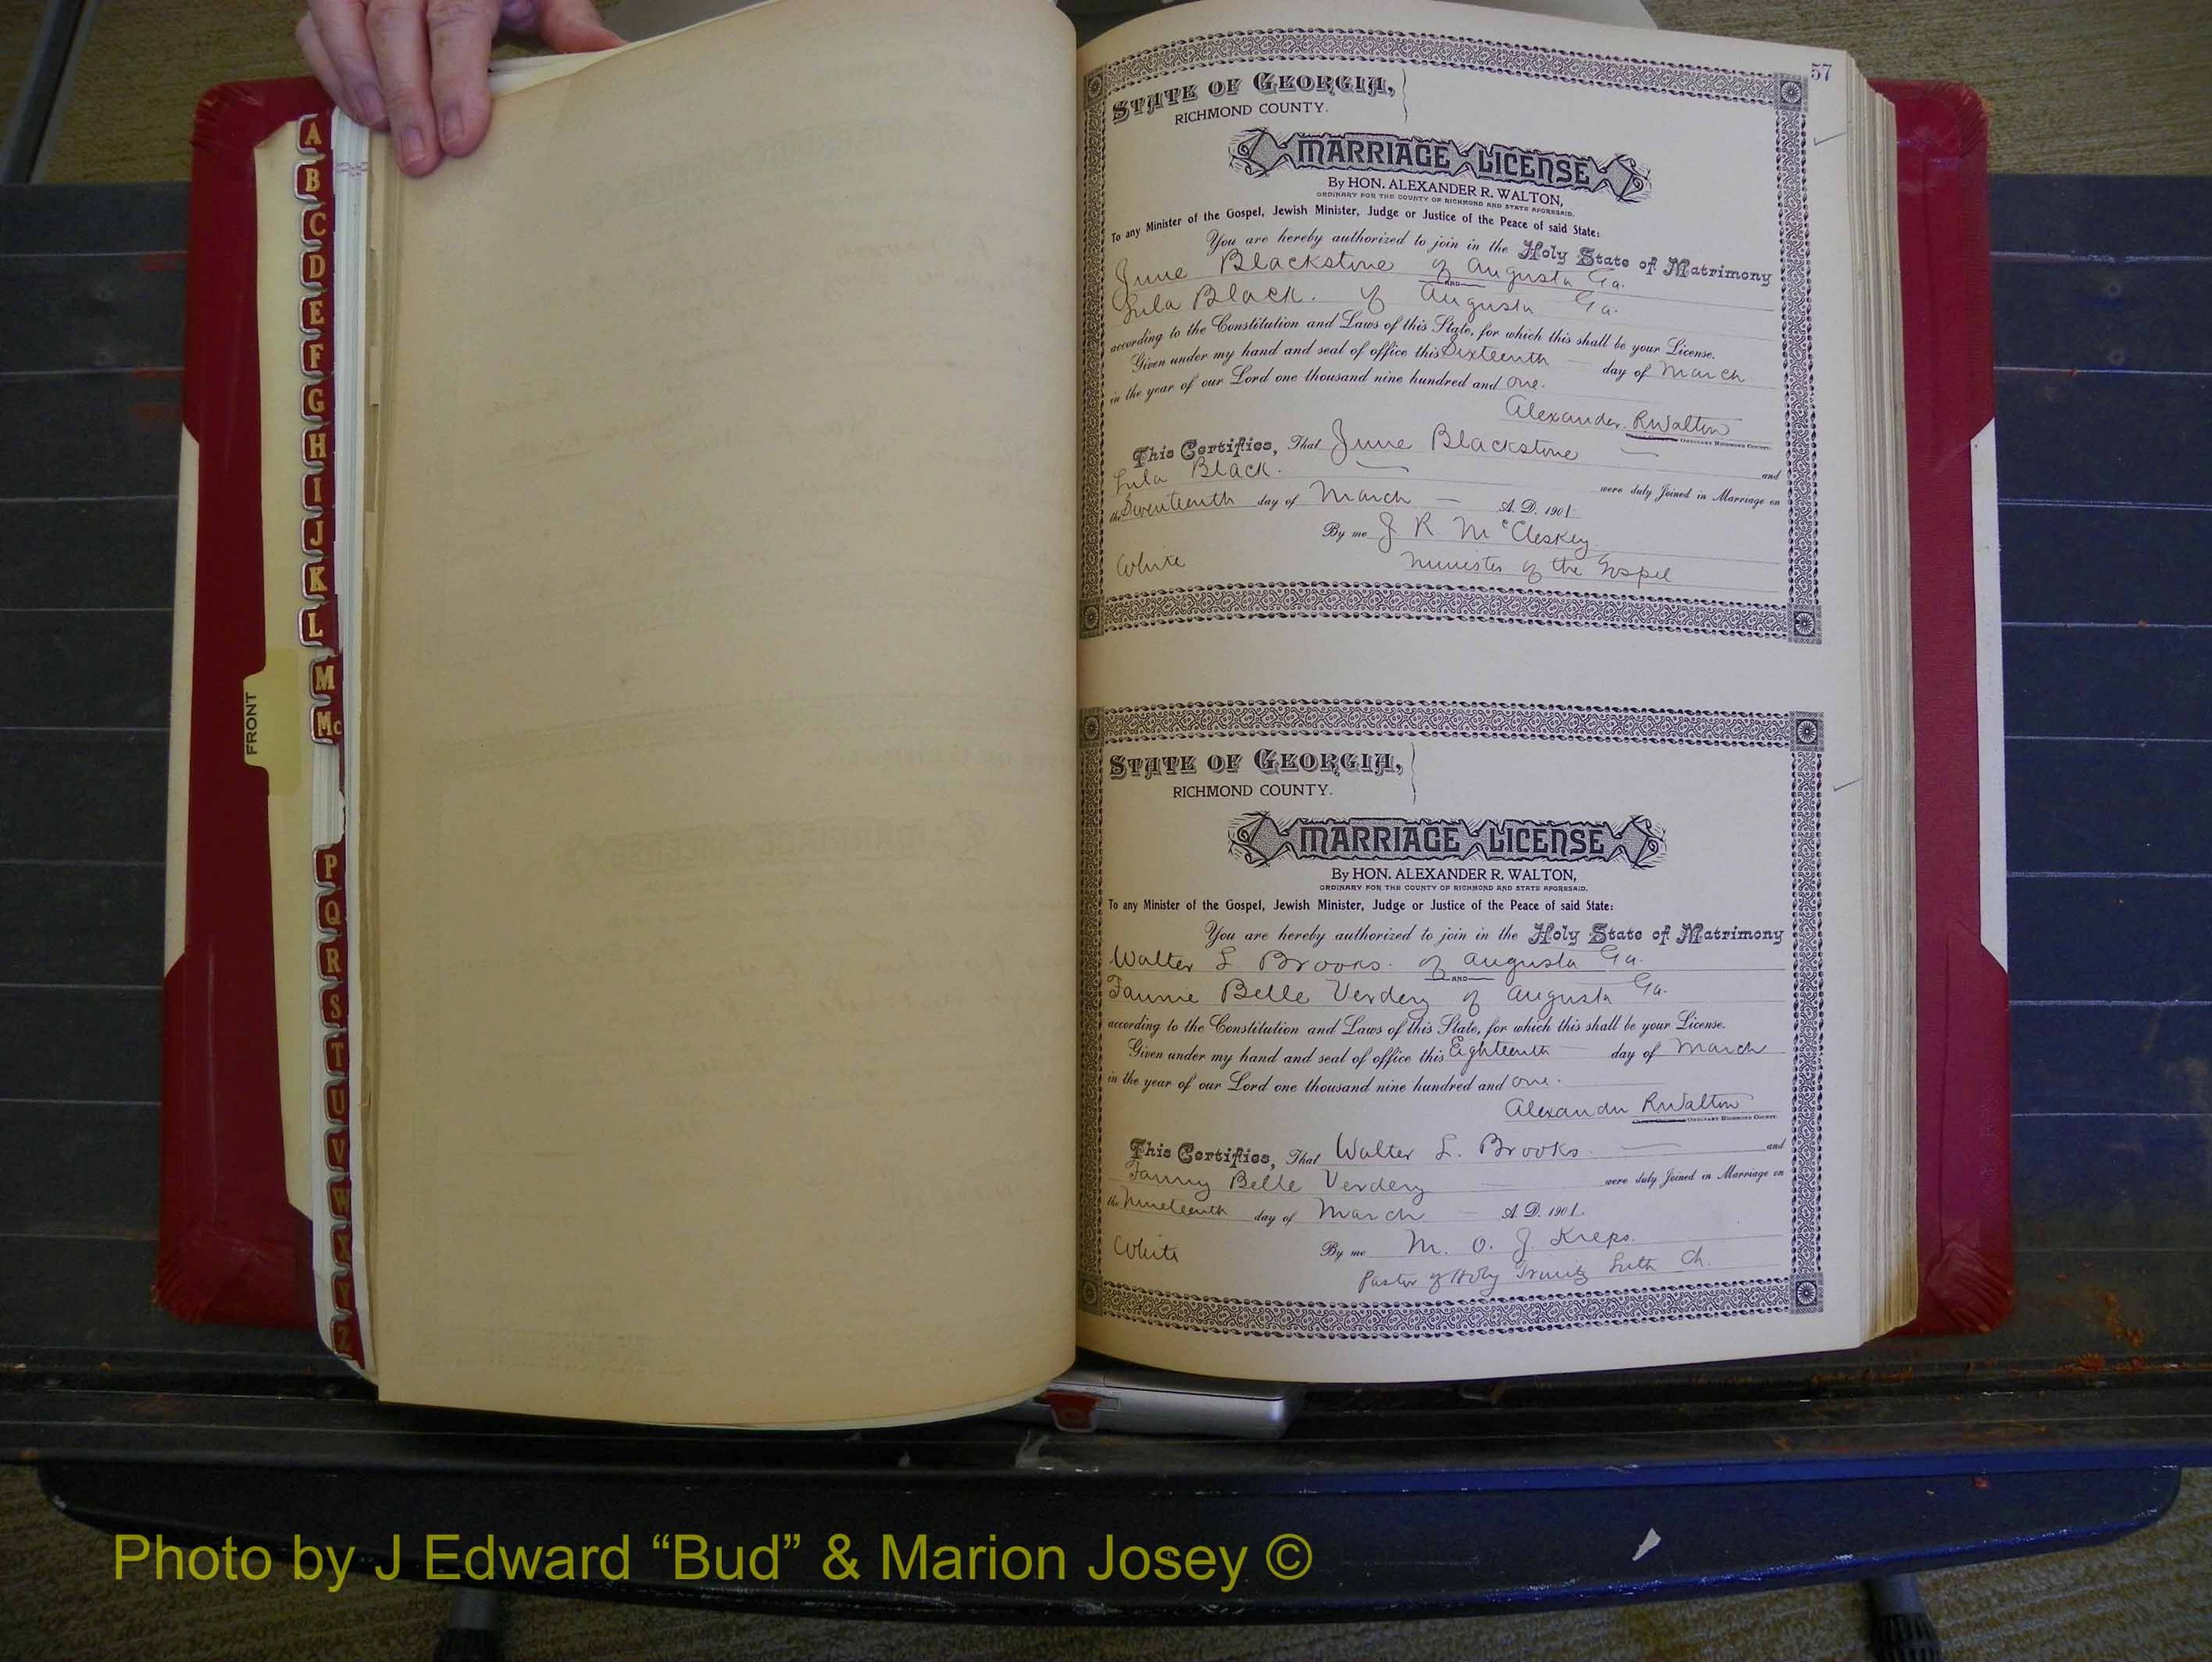 A
B
C
D
E
F
G
H
I
J
K
L
M
Mc
P
Q
R
S
T
U
V
W
X
Y
Z
FRONT
57
STATE OF GEORGIA,
RICHMOND COUNTY.
MARRIAGE LICENSE
By HON. ALEXANDER R. WALTON,
ORDINARY FOR THE COUNTY OF RICHMOND AND STATE AFORESAID.
To any Minister of the Gospel, Jewish Minister, Judge or Justice of the Peace of said State:
You are hereby authorized to join in the Holy State of Matrimony
June Blackstone of Augusta Ga.
AND
Lula Black. of Augusta Ga.
according to the Constitution and Laws of this State, for which this shall be your License.
Given under my hand and seal of office this Sixteenth day of March
in the year of our Lord one thousand nine hundred and one.
Alexander R Walton
ORDINARY RICHMOND COUNTY.
This Certifies, That June Blackstone and
Lula Black. were duly Joined in Marriage on
the Seventeenth day of March A. D. 1901.
By me J R McCleskey
White Minister of the Gospel
STATE OF GEORGIA,
RICHMOND COUNTY.
MARRIAGE LICENSE
By HON. ALEXANDER R. WALTON,
ORDINARY FOR THE COUNTY OF RICHMOND AND STATE AFORESAID.
To any Minister of the Gospel, Jewish Minister, Judge or Justice of the Peace of said State:
You are hereby authorized to join in the Holy State of Matrimony
Walter L Brooks. of Augusta Ga.
AND
Fannie Belle Verdery of Augusta Ga.
according to the Constitution and Laws of this State, for which this shall be your License.
Given under my hand and seal of office this Eighteenth day of March
in the year of our Lord one thousand nine hundred and one.
Alexander R Walton
ORDINARY RICHMOND COUNTY.
This Certifies, That Walter L. Brooks. and
Fanny Belle Verdery were duly Joined in Marriage on
the Nineteenth day of March A. D. 1901.
White By me M. O. J. Kreps.
Pastor of Holy Trinity Luth Ch.
Photo by J Edward “Bud” & Marion Josey ©